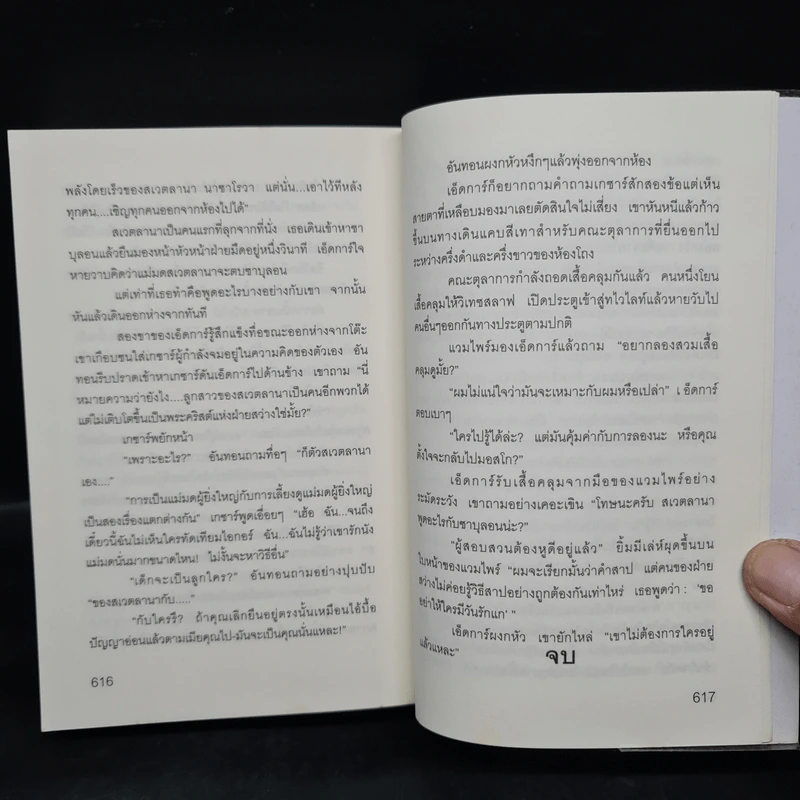 พลังโดยเร็วของสเวตลานา นาซาโรวา แต่นั่น...เอาไว้ทีหลัง
ทุกคน....เชิญทุกคนออกจากห้องไปได้”
สเวตลานาเป็นคนแรกที่ลุกจากที่นั่ง เธอเดินเข้าหาซา
บุลอนแล้วยืนมองหน้าหัวหน้าฝ่ายมืดอยู่หนึ่งวินาที เอ็ดการ์ใจ
หายวาบคิดว่าแม่มดสเวตลานาจะตบซาบุลอน
แต่เท่าที่เธอทำคือพูดอะไรบางอย่างกับเขา จากนั้น
หันแล้วเดินออกห่างจากทันที
สองขาของเอ็ดการ์รู้สึกแข็งทื่อขณะออกห่างจากโต๊ะ
เขาเกือบชนใส่เกซาร์ผู้กำลังจมอยู่ในความคิดของตัวเอง อัน
ทอนรีบปราดเข้าหาเกซาร์ดันเอ็ดการ์ไปด้านข้าง เขาถาม “นี่
หมายความว่ายังไง....ลูกสาวของสเวตลานาเป็นคนอีกพวกได้
แต่ไม่เติบโตขึ้นเป็นพระคริสต์แห่งฝ่ายสว่างใช่มั้ย?”
เกซาร์พยักหน้า
“เพราะอะไร?” อันทอนถามทื่อๆ “ก็ตัวสเวตลานา
เอง....”
“การเป็นแม่มดผู้ยิ่งใหญ่กับการเลี้ยงดูแม่มดผู้ยิ่งใหญ่
เป็นสองเรื่องแตกต่างกัน” เกซาร์พูดเอื่อยๆ “เฮ้อ ฉัน...จนถึง
เดี๋ยวนี้ฉันไม่เห็นใครทัดเทียมไอกอร์ ฉัน...ฉันไม่รู้ว่าเขารักนัง
แม่มดนั่นมากขนาดไหน! ไม่งั้นจะหาวิธีอื่น”
“เด็กจะเป็นลูกใคร?” อันทอนถามอย่างปุบปับ
“ของสเวตลานากับ.....”
“กับใครรึ? ถ้าคุณเลิกยืนอยู่ตรงนั้นเหมือนไอ้บื้อ
ปัญญาอ่อนแล้วตามเมียคุณไป-มันจะเป็นคุณนั่นแหละ!”
616
อันทอนผงกหัวหงึกๆแล้วพุ่งออกจากห้อง
เอ็ดการ์ก็อยากถามคำถามเกซาร์สักสองข้อแต่เห็น
สายตาที่เหลือบมองมาเลยตัดสินใจไม่เสี่ยง เขาหันหนีแล้วก้าว
ขึ้นบนทางเดินแคบสีเทาสำหรับคณะตุลาการที่ยื่นออกไป
ระหว่างครึ่งดำและครึ่งขาวของห้องโถง
คณะตุลาการกำลังถอดเสื้อคลุมกันแล้ว คนหนึ่งโยน
เสื้อคลุมให้วิเทซสลาฟ เปิดประตูเข้าสู่ทไวไลท์แล้วหายวับไป
คนอื่นๆออกกันทางประตูตามปกติ
แวมไพร์มองเอ็ดการ์แล้วถาม “อยากลองสวมเสื้อ
คลุมดูมั้ย?”
“ผมไม่แน่ใจว่ามันจะเหมาะกับผมหรือเปล่า” เอ็ดการ์
ตอบเบาๆ
“ใครไปรู้ได้ล่ะ? แต่มันคุ้มค่ากับการลองนะ หรือคุณ
ตั้งใจจะกลับไปมอสโก?”
เอ็ดการ์รับเสื้อคลุมจากมือของแวมไพร์อย่าง
ระมัดระวัง เขาถามอย่างเคอะเขิน “โทษนะครับ สเวตลานา
พูดอะไรกับซาบุลอนน่ะ?”
“ผู้สอบสวนต้องหูดีอยู่แล้ว” ยิ้มมีเล่ห์ผุดขึ้นบน
ใบหน้าของแวมไพร์ “ผมจะเรียกมั้นว่าคำสาป แต่คนของฝ่าย
สว่างไม่ค่อยรู้วิธีสาปอย่างถูกต้องกันเท่าไหร่ เธอพูดว่า : ‘ขอ
อย่าให้ใครมีวันรักแก’ ”
เอ็ดการ์ผงกหัว เขายักไหล่ “เขาไม่ต้องการใครอยู่
แล้วแหละ”
จบ
617